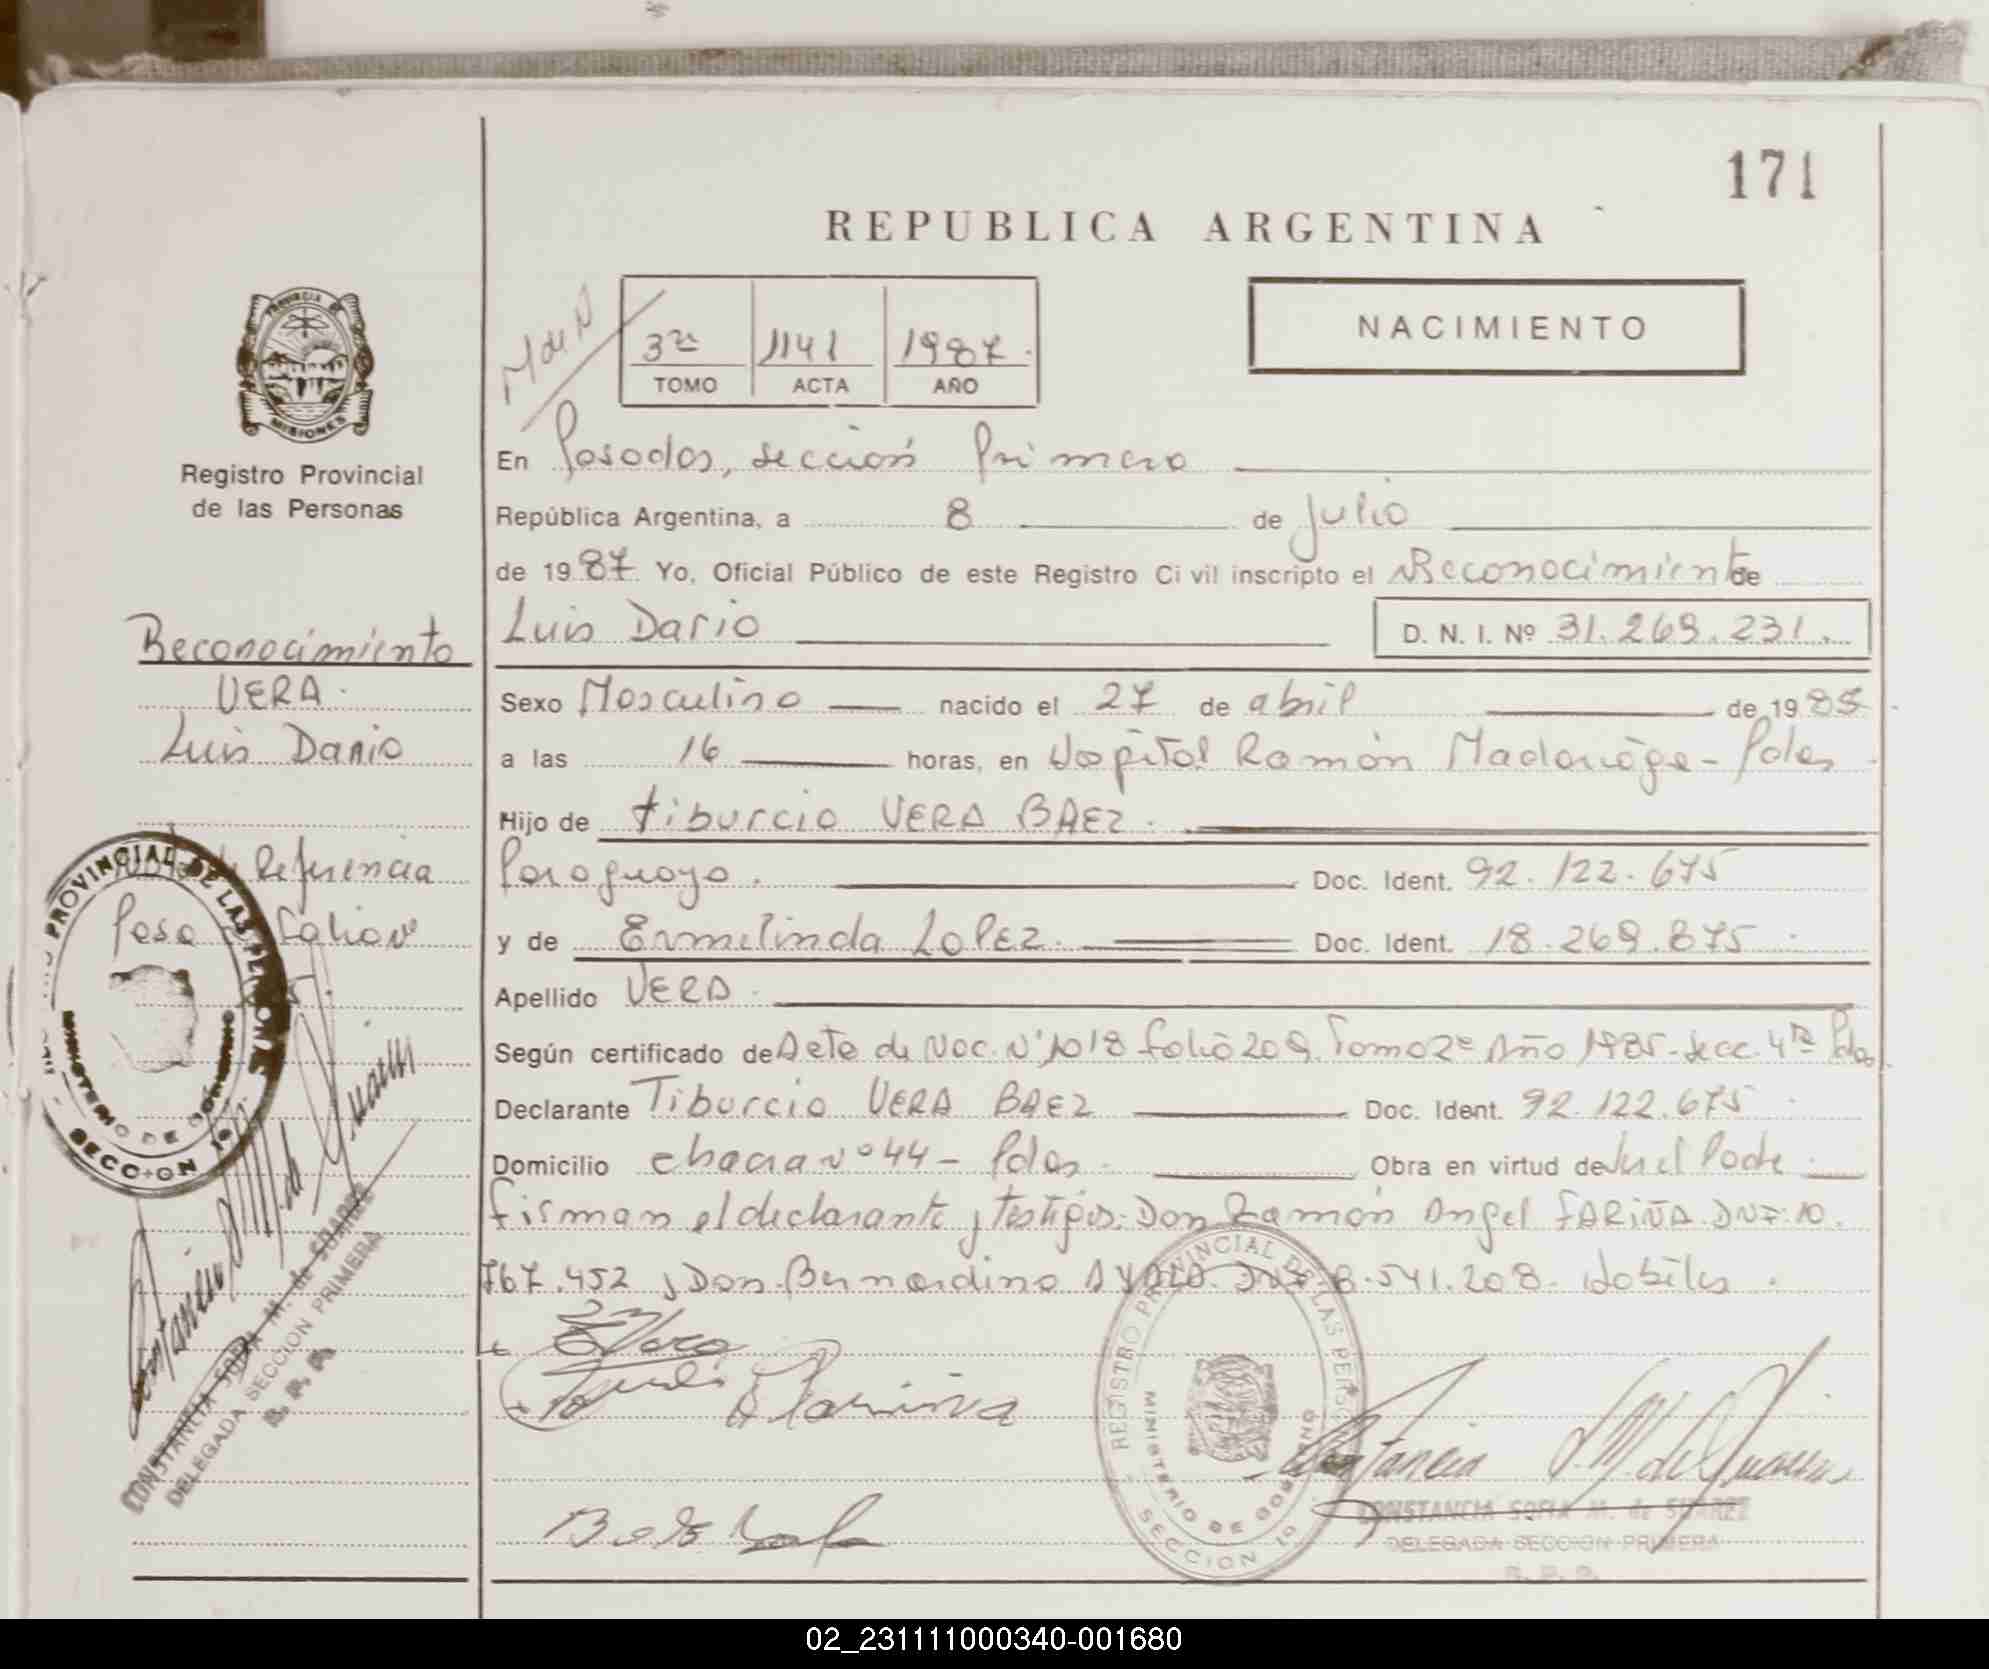 171
REPUBLICA ARGENTINA
NACIMIENTO
M de N
3ro 1141 1987
TOMO ACTA AÑO
PROVINCIA DE MISIONES
Registro Provincial
de las Personas
Reconocimiento
VERA
Luis Dario
de Referencia
Pasa a folio
En Posadas, sección Primera
República Argentina, a 8 de Julio
de 1987 Yo, Oficial Público de este Registro Civil inscripto el Reconocimiento de
Luis Dario D. N. I. Nº 31.269.231.
Sexo Masculino nacido el 27 de abril de 1985
a las 16 horas, en Hospital Ramón Madariaga - Pdas
Hijo de Tiburcio VERA BAEZ.
Paraguayo. Doc. Ident. 92.122.675
y de Ermelinda LOPEZ. Doc. Ident. 18.269.875
Apellido VERA
Según certificado de Acta de Nac. Nº 1018 folio 209 Tomo 2º Año 1985 - Secc. 4ta Pdas
Declarante Tiburcio VERA BAEZ Doc. Ident. 92.122.675
Domicilio chacra Nº 44 - Pdas. Obra en virtud de Ser el Padre
firman el declarante y testigos: Don Ramón Angel FARIÑA. DNI. 10.
767.452 y Don Bernardino AYALA. DNI. 8.541.208. Hábiles.
REGISTRO PROVINCIAL DE LAS PERSONAS
MINISTERIO DE GOBIERNO
SECCION 1º
CONSTANCIA SOFIA M. de SUAREZ
DELEGADA SECCION PRIMERA
R. P. P.
REGISTRO PROVINCIAL DE LAS PERSONAS
MINISTERIO DE GOBIERNO
SECCION 1º
Constancia S. M. de Suarez
CONSTANCIA SOFIA M. de SUAREZ
DELEGADA SECCION PRIMERA
R. P. P.
02_231111000340-001680